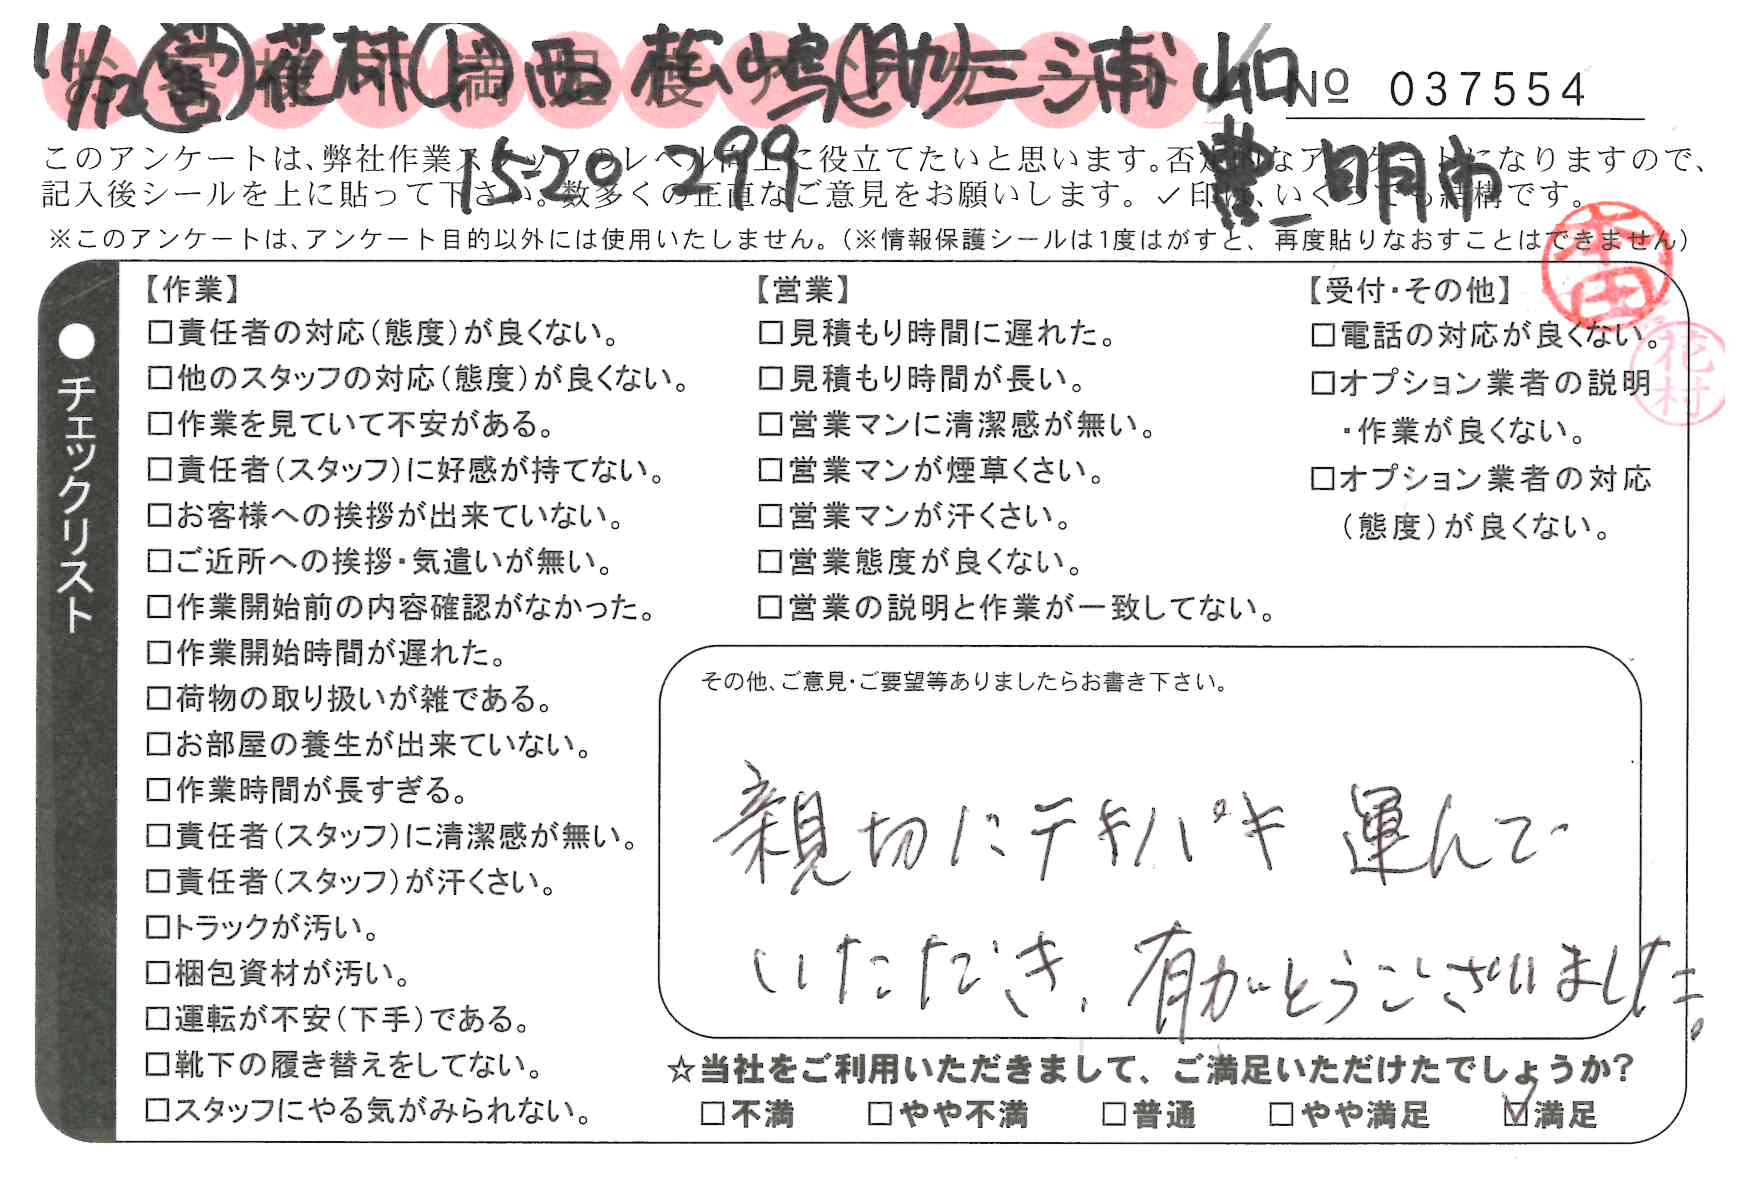 11/12 営 花村 片 西 松嶋 助 三浦 山口
お客様不満足度アンケート
No 037554
15-20 299 豊明市
このアンケートは、弊社作業スタッフのレベル向上に役立てたいと思います。否定的なアンケートになりますので、
記入後シールを上に貼って下さい。数多くの正直なご意見をお願いします。✓印は、いくつでも結構です。
※このアンケートは、アンケート目的以外には使用いたしません。(※情報保護シールは1度はがすと、再度貼りなおすことはできません)
本田
花村
●チェックリスト
【作業】
□責任者の対応(態度)が良くない。
□他のスタッフの対応(態度)が良くない。
□作業を見ていて不安がある。
□責任者(スタッフ)に好感が持てない。
□お客様への挨拶が出来ていない。
□ご近所への挨拶・気遣いが無い。
□作業開始前の内容確認がなかった。
□作業開始時間が遅れた。
□荷物の取り扱いが雑である。
□お部屋の養生が出来ていない。
□作業時間が長すぎる。
□責任者(スタッフ)に清潔感が無い。
□責任者(スタッフ)が汗くさい。
□トラックが汚い。
□梱包資材が汚い。
□運転が不安(下手)である。
□靴下の履き替えをしてない。
□スタッフにやる気がみられない。
【営業】
□見積もり時間に遅れた。
□見積もり時間が長い。
□営業マンに清潔感が無い。
□営業マンが煙草くさい。
□営業マンが汗くさい。
□営業態度が良くない。
□営業の説明と作業が一致してない。
【受付・その他】
□電話の対応が良くない。
□オプション業者の説明
・作業が良くない。
□オプション業者の対応
(態度)が良くない。
その他、ご意見・ご要望等ありましたらお書き下さい。
親切にテキパキ運んで
いただき、有難とうございました。
☆当社をご利用いただきまして、ご満足いただけたでしょうか?
□不満 □やや不満 □普通 □やや満足 ☑満足